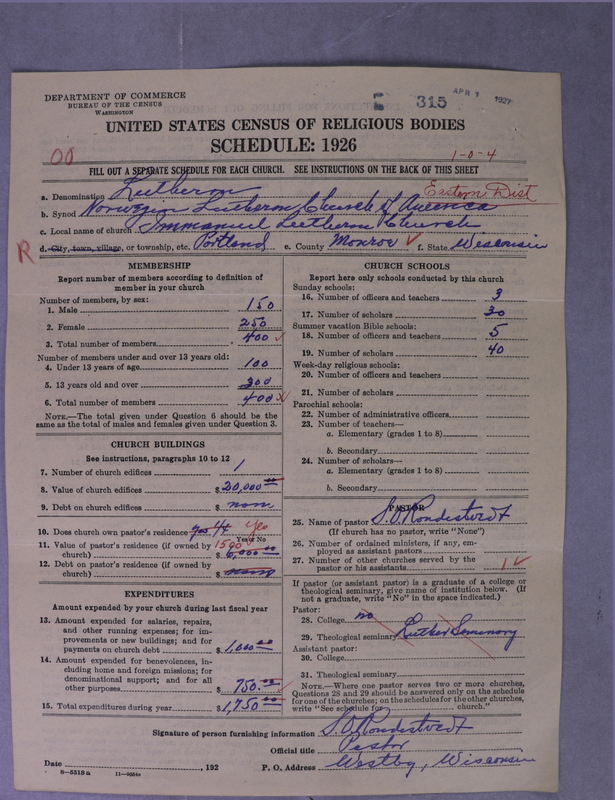 DEPARTMENT OF COMMERCE
BUREAU OF THE CENSUS
WASHINGTON
315 APR 1 1927
UNITED STATES CENSUS OF RELIGIOUS BODIES
SCHEDULE: 1926
00
1-0-4
FILL OUT A SEPARATE SCHEDULE FOR EACH CHURCH. SEE INSTRUCTIONS ON THE BACK OF THIS SHEET
Eastern Dist
a. Denomination Lutheran
b. Synod Norwegian Lutheran Church of America
c. Local name of church Immanuel Lutheran Church
R d. City, town, village, or township, etc. Portland e. County Monroe ✓ f. State Wisconsin
MEMBERSHIP
Report number of members according to definition of
member in your church
Number of members, by sex:
1. Male 150
2. Female 250
3. Total number of members 400 ✓
Number of members under and over 13 years old:
4. Under 13 years of age 100
5. 13 years old and over 300
6. Total number of members 400 ✓
NOTE.—The total given under Question 6 should be the
same as the total of males and females given under Question 3.
CHURCH BUILDINGS
See instructions, paragraphs 10 to 12
7. Number of church edifices 1
8. Value of church edifices $ 20,000.00
9. Debt on church edifices $ none
10. Does church own pastor's residence yes 1/4 yes
Yes or No
11. Value of pastor's residence (if owned by 1500
church) $
12. Debt on pastor's residence (if owned by
church) $ none
EXPENDITURES
Amount expended by your church during last fiscal year
13. Amount expended for salaries, repairs,
and other running expenses; for im-
provements or new buildings; and for
payments on church debt $ 1,000.00
14. Amount expended for benevolences, in-
cluding home and foreign missions; for
denominational support; and for all
other purposes $ 750.00
15. Total expenditures during year $ 1,750.00
CHURCH SCHOOLS
Report here only schools conducted by this church
Sunday schools:
16. Number of officers and teachers 3
17. Number of scholars 30
Summer vacation Bible schools:
18. Number of officers and teachers 5
19. Number of scholars 40
Week-day religious schools:
20. Number of officers and teachers
21. Number of scholars
Parochial schools:
22. Number of administrative officers
23. Number of teachers—
a. Elementary (grades 1 to 8)
b. Secondary
24. Number of scholars—
a. Elementary (grades 1 to 8)
b. Secondary
PASTOR
25. Name of pastor S. O. Rondestvedt
(If church has no pastor, write "None")
26. Number of ordained ministers, if any, em-
ployed as assistant pastors
27. Number of other churches served by the
pastor or his assistants 1 ✓
If pastor (or assistant pastor) is a graduate of a college or
theological seminary, give name of institution below. (If
not a graduate, write "No" in the space indicated.)
Pastor:
28. College no
29. Theological seminary Luther Seminary
Assistant pastor:
30. College
31. Theological seminary
NOTE.—Where one pastor serves two or more churches,
Questions 28 and 29 should be answered only on the schedule
for one of the churches; on the schedules for the other churches,
write "See schedule for church."
Signature of person furnishing information S. O. Rondestvedt
Official title Pastor
Date , 192 P. O. Address Westby, Wisconsin
8-5318a 11-9034